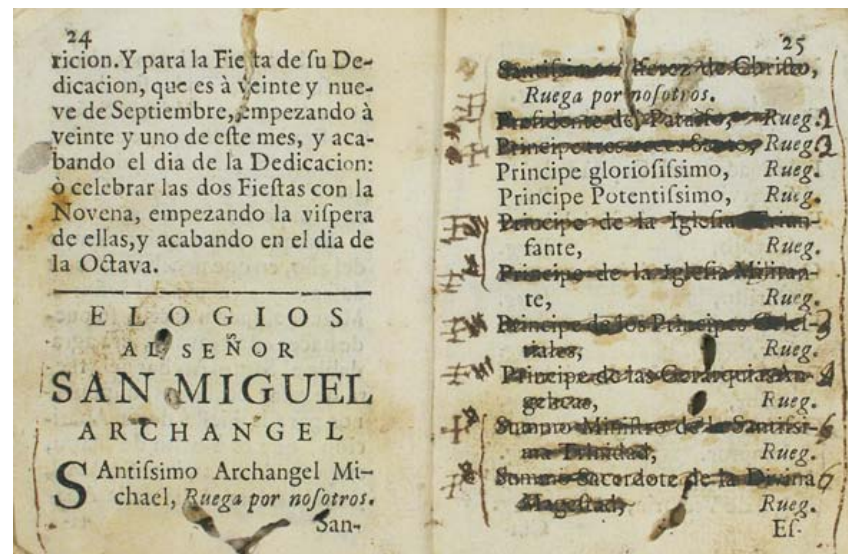 24
ricion. Y para la Fiesta de ſu De-
dicacion, que es à veinte y nue-
ve de Septiembre, empezando à
veinte y uno de eſte mes, y aca-
bando el dia de la Dedicacion:
ò celebrar las dos Fieſtas con la
Novena, empezando la viſpera
de ellas, y acabando en el dia de
la Octava.
ELOGIOS
AL SEÑOR
SAN MIGUEL
ARCHANGEL
SAntiſsimo Archangel Mi-
chael, Ruega por noſotros.
San-
25
Santiſsimo Alferez de Chriſto,
Ruega por noſotros.
Preſidente del Paraiſo, Rueg. 1
Principe tres veces Santo, Rueg. 2
Principe glorioſiſsimo, Rueg.
Principe Potentiſsimo, Rueg.
Principe de la Igleſia Triun-
fante, Rueg.
Principe de la Igleſia Militan-
te, Rueg.
Principe de los Principes Celeſ- 3
tiales, Rueg.
Principe de las Gerarquias An- 4
gelicas, Rueg.
Summo Miniſtro de la Santiſsi-
ma Trinidad, Rueg.
Summo Sacerdote de la Divina
Mageſtad, Rueg.
Eſ-